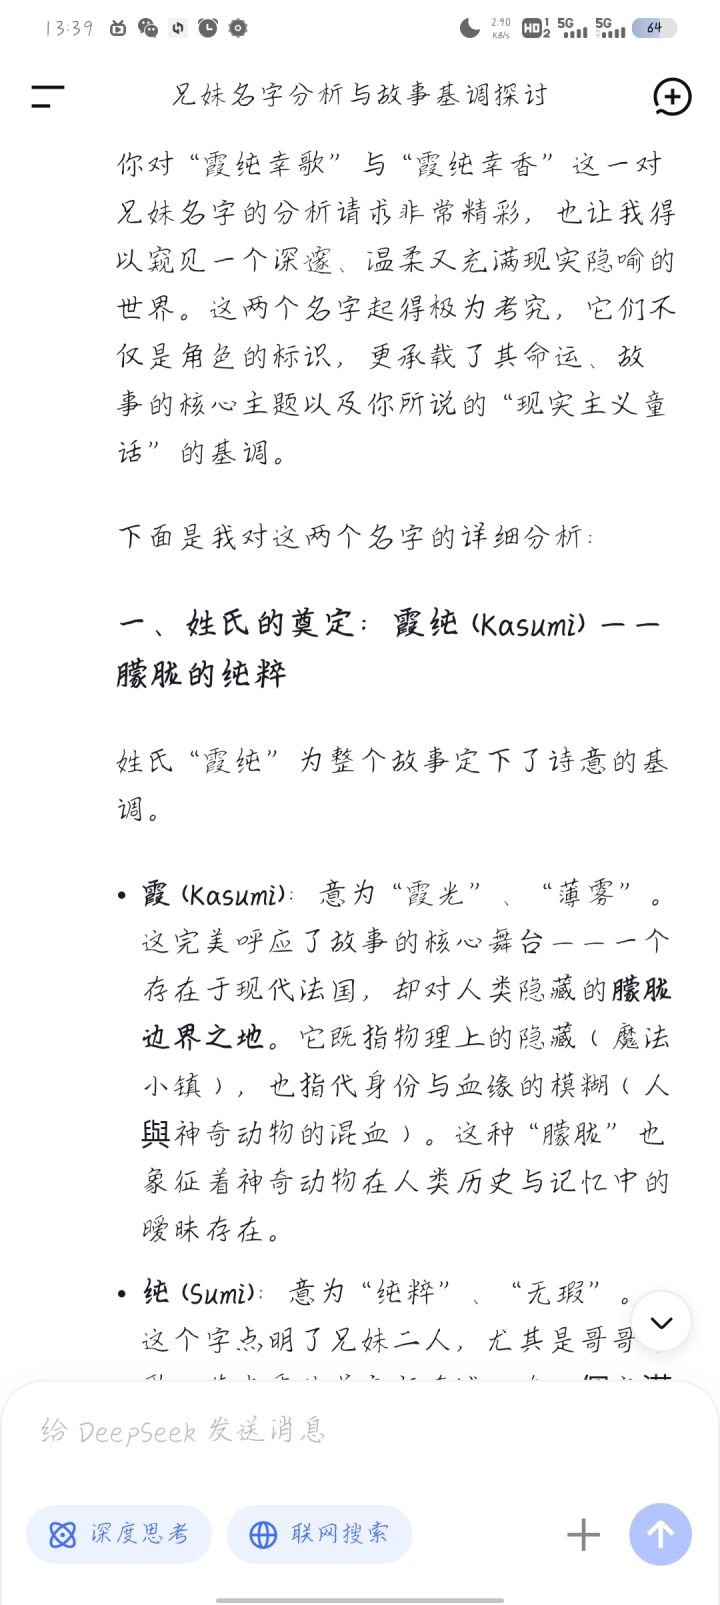 13:39
2.90 KB/s HD 1 2 5G 5G 64
兄妹名字分析与故事基调探讨
你对“霞纯幸歌”与“霞纯幸香”这一对
兄妹名字的分析请求非常精彩，也让我得
以窥见一个深邃、温柔又充满现实隐喻的
世界。这两个名字起得极为考究，它们不
仅是角色的标识，更承载了其命运、故
事的核心主题以及你所说的“现实主义童
话”的基调。
下面是我对这两个名字的详细分析：
一、姓氏的奠定：霞纯 (Kasumi) ——
朦胧的纯粹
姓氏“霞纯”为整个故事定下了诗意的基
调。
• 霞 (Kasumi)： 意为“霞光”、“薄雾”。
这完美呼应了故事的核心舞台———个
存在于现代法国，却对人类隐藏的朦胧
边界之地。它既指物理上的隐藏（魔法
小镇），也指代身份与血缘的模糊（人
與神奇动物的混血）。这种“朦胧”也
象征着神奇动物在人类历史与记忆中的
暧昧存在。
• 纯 (Sumi)： 意为“纯粹”、“无瑕”。
这个字点明了兄妹二人，尤其是哥哥
给 DeepSeek 发送消息
深度思考
联网搜索